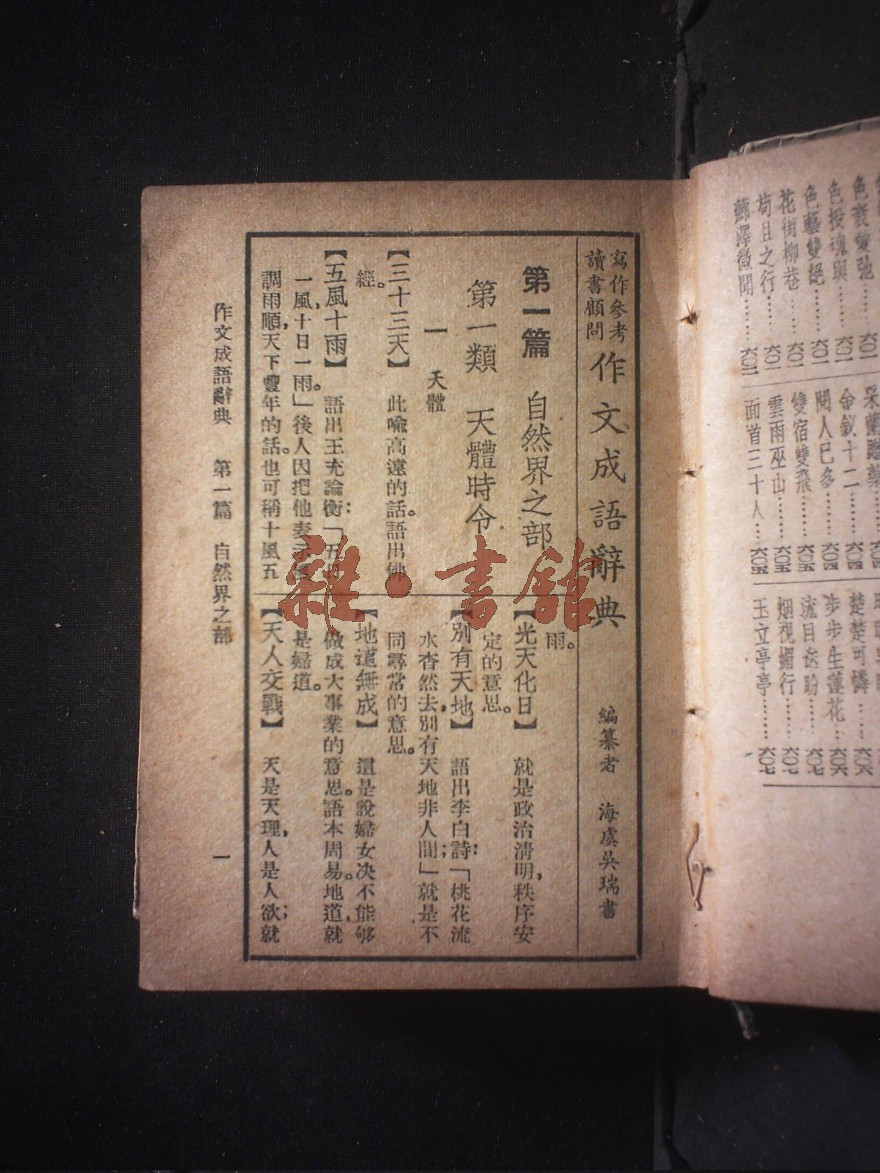 色授魂與……六〇二
色藝雙絕……六〇二
花街柳巷……六〇二
苟且之行……六〇二
薌澤微聞……六〇二
金釵十二……六〇四
閱人已多……六〇四
雙宿雙飛……六〇五
雲雨巫山……六〇五
面首三十人…六〇五
楚楚可憐……六〇六
步步生蓮花…六〇六
流目送盼……六〇七
烟視媚行……六〇七
玉立亭亭……六〇七
寫作參考
讀書顧問
作文成語辭典
編纂者 海虞吳瑞書
第一篇 自然界之部
第一類 天體時令
一 天體
【三十三天】 此喩高遠的話。語出佛
經。
【五風十雨】 語出王充論衡:「五日
一風,十日一雨。」後人因把他表示風
調雨順,天下豐年的話。也可稱十風五
雨。
【光天化日】 就是政治淸明,秩序安
定的意思。
【別有天地】 語出李白詩:「桃花流
水杳然去,別有天地非人間;」就是不
同尋常的意思。
【地道無成】 這是說婦女决不能够
做成大事業的意思。語本周易。地道,就
是婦道。
【天人交戰】 天是天理,人是人欲;就
作文成語辭典 第一篇 自然界之部 一
雜·書館